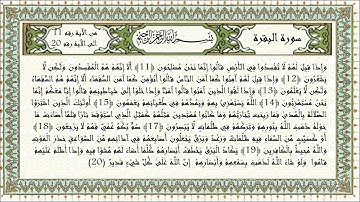 سورة البقرة
بسم الله الرحمن الرحيم
من الآية رقم 11
الى الآية رقم 20
وَإِذَا قِيلَ لَهُمْ لَا تُفْسِدُوا فِي الْأَرْضِ قَالُوا إِنَّمَا نَحْنُ مُصْلِحُونَ (11) أَلَا إِنَّهُمْ هُمُ الْمُفْسِدُونَ وَلَكِنْ لَا
يَشْعُرُونَ (12) وَإِذَا قِيلَ لَهُمْ آمِنُوا كَمَا آمَنَ النَّاسُ قَالُوا أَنُؤْمِنُ كَمَا آمَنَ السُّفَهَاءُ أَلَا إِنَّهُمْ هُمُ السُّفَهَاءُ
وَلَكِنْ لَا يَعْلَمُونَ (13) وَإِذَا لَقُوا الَّذِينَ آمَنُوا قَالُوا آمَنَّا وَإِذَا خَلَوْا إِلَى شَيَاطِينِهِمْ قَالُوا إِنَّا مَعَكُمْ إِنَّمَا
نَحْنُ مُسْتَهْزِئُونَ (14) اللَّهُ يَسْتَهْزِئُ بِهِمْ وَيَمُدُّهُمْ فِي طُغْيَانِهِمْ يَعْمَهُونَ (15) أُولَئِكَ الَّذِينَ اشْتَرَوُا
الضَّلَالَةَ بِالْهُدَى فَمَا رَبِحَتْ تِجَارَتُهُمْ وَمَا كَانُوا مُهْتَدِينَ (16) مَثَلُهُمْ كَمَثَلِ الَّذِي اسْتَوْقَدَ نَارًا فَلَمَّا أَضَاءَتْ مَا
حَوْلَهُ ذَهَبَ اللَّهُ بِنُورِهِمْ وَتَرَكَهُمْ فِي ظُلُمَاتٍ لَا يُبْصِرُونَ (17) صُمٌّ بُكْمٌ عُمْيٌ فَهُمْ لَا يَرْجِعُونَ (18)
أَوْ كَصَيِّبٍ مِنَ السَّمَاءِ فِيهِ ظُلُمَاتٌ وَرَعْدٌ وَبَرْقٌ يَجْعَلُونَ أَصَابِعَهُمْ فِي آذَانِهِمْ مِنَ الصَّوَاعِقِ حَذَرَ الْمَوْتِ
وَاللَّهُ مُحِيطٌ بِالْكَافِرِينَ (19) يَكَادُ الْبَرْقُ يَخْطَفُ أَبْصَارَهُمْ كُلَّمَا أَضَاءَ لَهُمْ مَشَوْا فِيهِ وَإِذَا أَظْلَمَ عَلَيْهِمْ
قَامُوا وَلَوْ شَاءَ اللَّهُ لَذَهَبَ بِسَمْعِهِمْ وَأَبْصَارِهِمْ إِنَّ اللَّهَ عَلَى كُلِّ شَيْءٍ قَدِيرٌ (20)